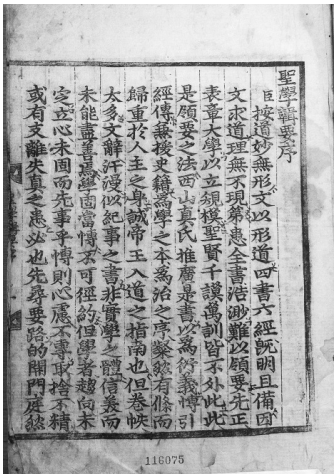 聖學輯要序
臣按道妙無形文以形道四書六經旣明且備因
文求道理無不現第患全書浩渺難以領要先正
表章大學以立規模聖賢千謨萬訓皆不外此此
是領要之法西山真氏推廣是書以爲衍義博引
經傳兼援史籍爲學之本爲治之序粲然有條而
歸重於人主之身誠帝王入道之指南也但卷帙
太多文辭汗漫似紀事之書非實學之體信美而
未能盡善焉學固當博不可徑約但學者趨向未
定立心未固而先事乎博則心慮不專取捨不精
或有支離失真之患必也先尋要路的開門庭然
116075